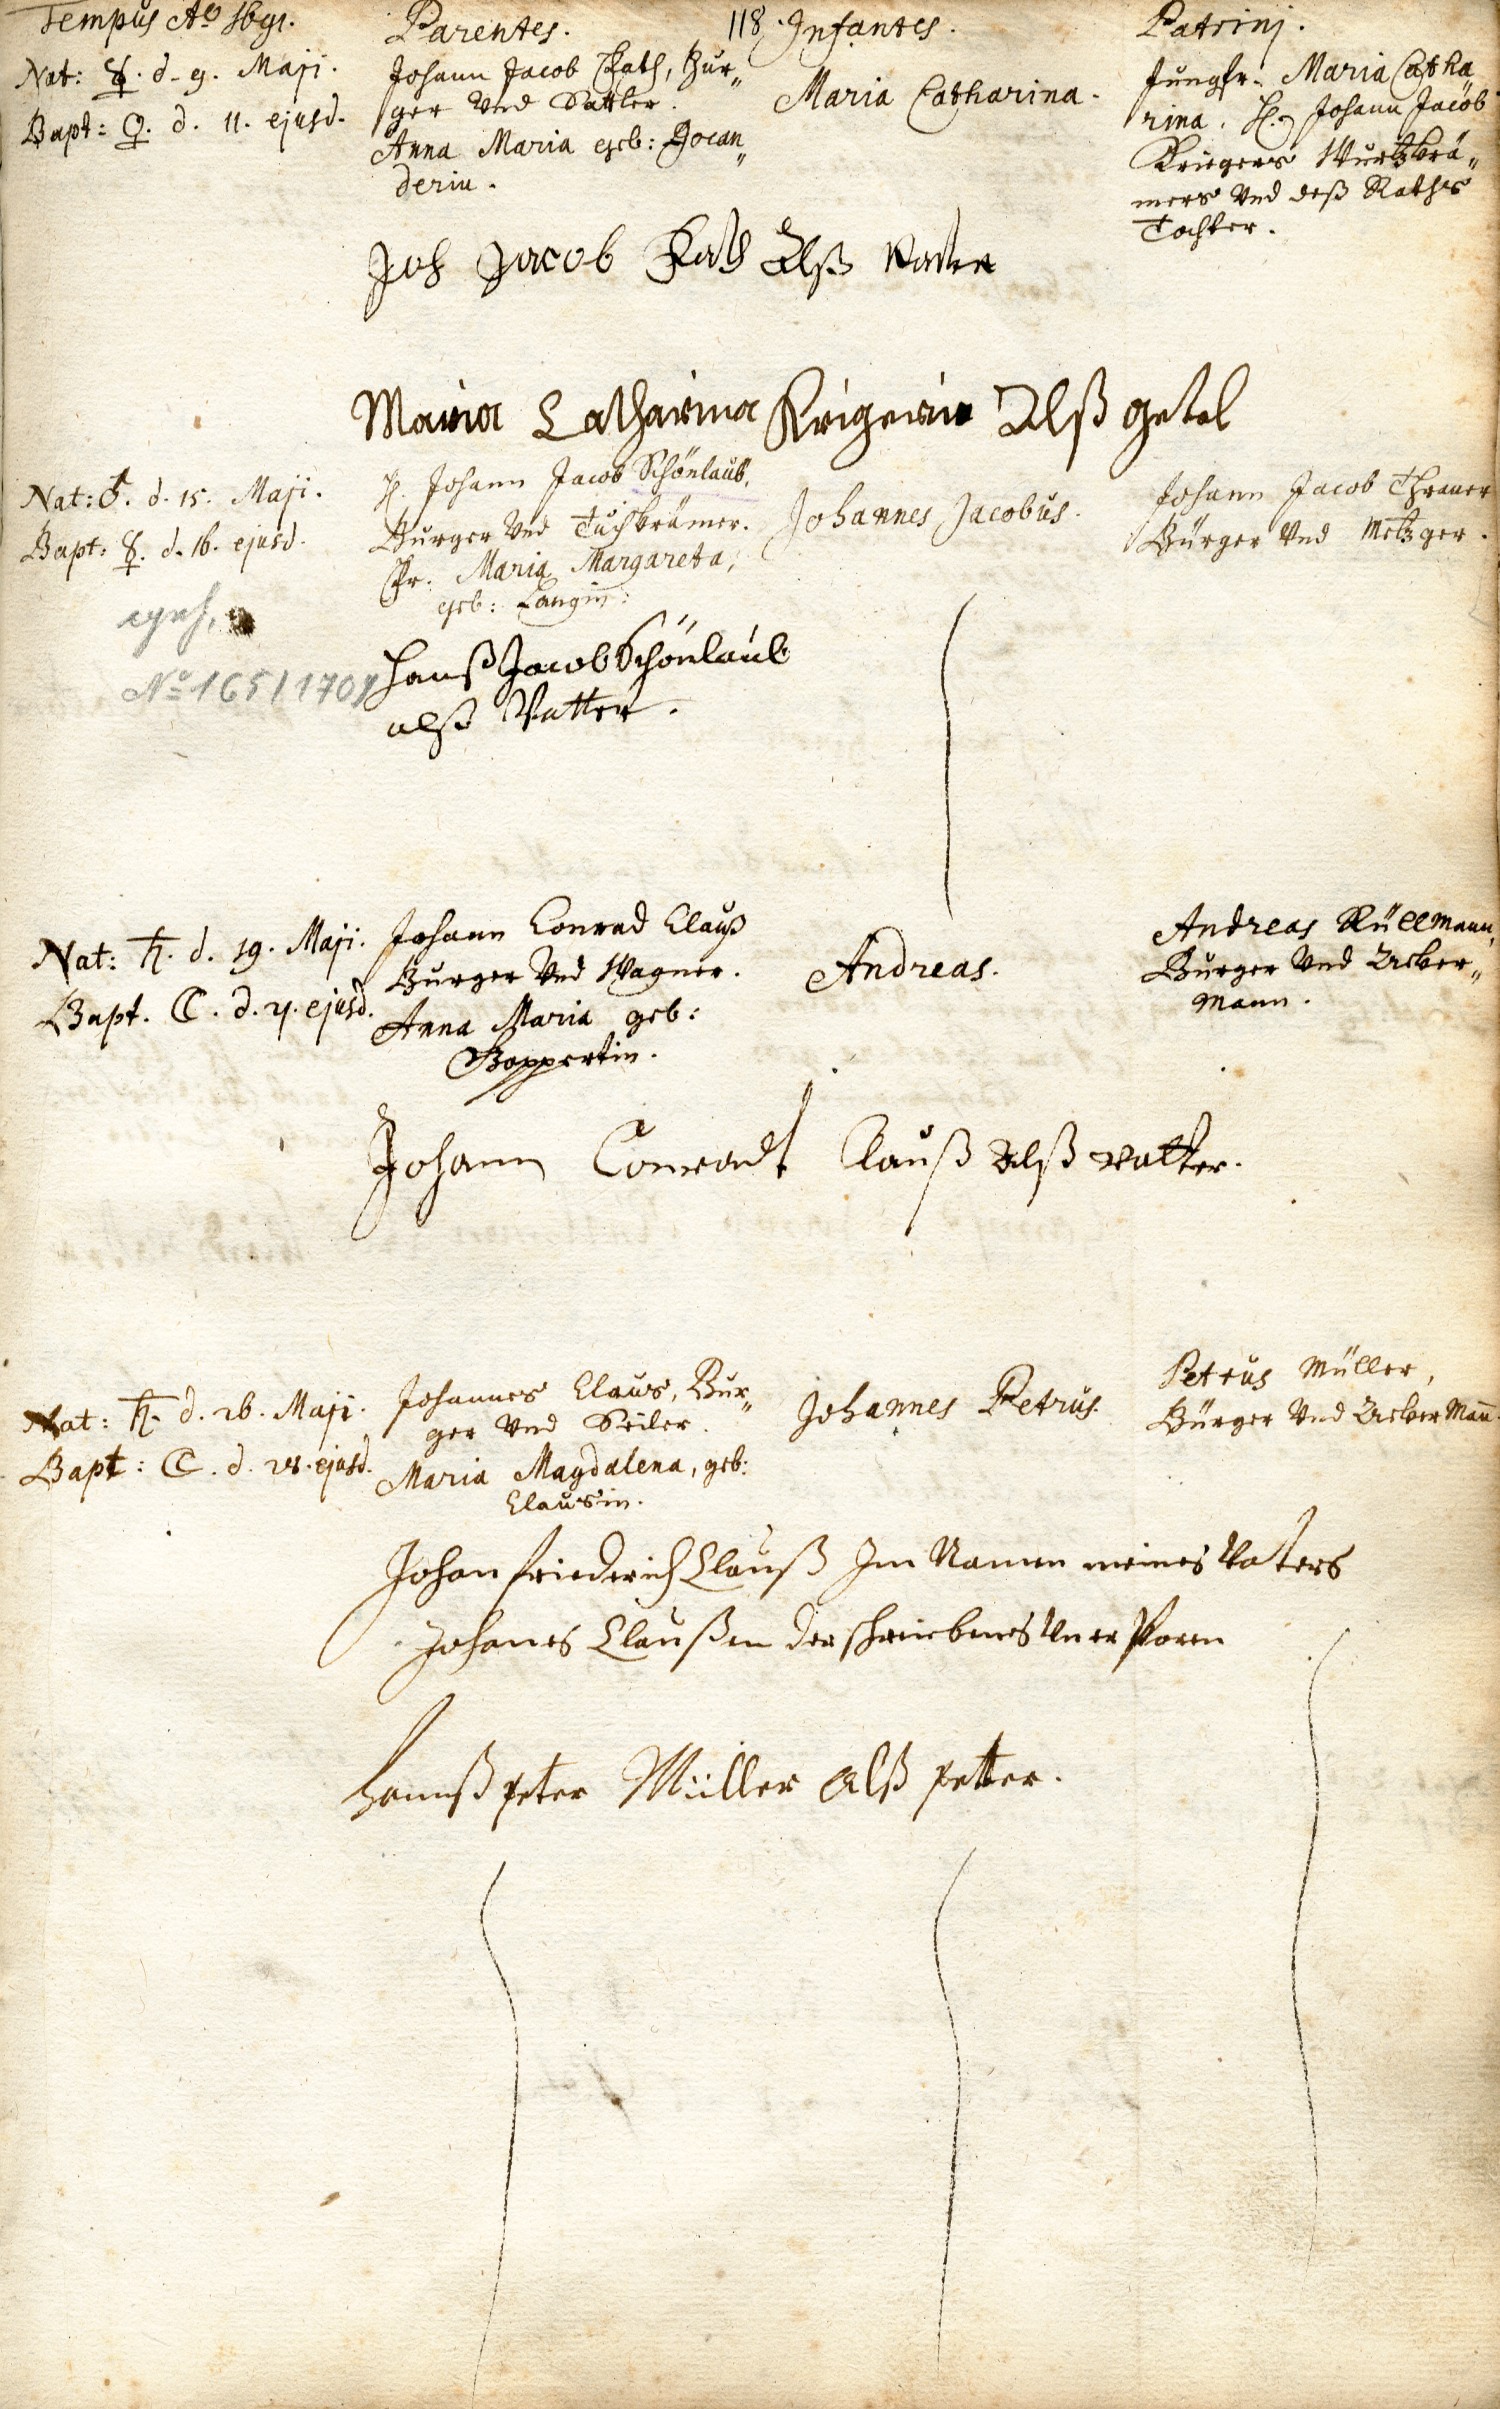 Tempus Ao 1691. Parentes. 118. Infantes. Patrinj.
Nat: ☿. d. 9. Maji.
Bapt: ♀. d. 11. ejusd.
Johann Jacob Rath, Bur„
ger Vnd Sattler.
Anna Maria geb:
derin.
Maria Catharina.
Jungfr. Maria Catha„
rina. H. Johann Jacob
Kriegers Wurtzkrä„
mers Vnd deß Raths
Tochter.
Joh Jacob Rath Alß Vatter
Maria Catharina Krigerin Alß getel
Nat: ♂. d. 15. Maji.
Bapt: ☿. d. 16. ejusd.
H. Johann Jacob Schönlaub,
Burger Vnd Tuchkrämer.
Fr. Maria Margareta,
geb: Langin:
Johannes Jacobus.
Johann Jacob Thraner
Bürger Vnd Metzger.
No 165/1709
Hanß Jacob Schönlaub
alß Vatter.
Nat: ♄. d. 19. Maji.
Bapt. ☾. d. 21. ejusd.
Johann Conrad Clauß
Burger Vnd Wagner.
Anna Maria geb:
Boppertin.
Andreas.
Andreas Rüllmann,
Burger Vnd Acker„
mann.
Johann Conradt Clauß Alß vatter.
Nat: ♄. d. 26. Maji.
Bapt: ☾. d. 28. ejusd.
Johannes Claus, Bur„
ger Vnd Seiler.
Maria Magdalena, geb:
Clausin.
Johannes Petrus.
Petrus Müller,
Bürger Vnd AckerMan̄.
Johan friederich Clauß Im Namen meines Vaters
Johanes Claußen
Hannß peter Müller Alß petter.